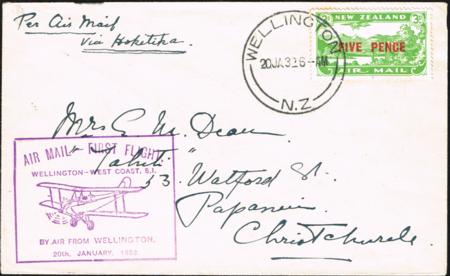 Per Air Mail
Via Hokitika.
WELLINGTON
20JA32 6-AM
N.Z
3D NEW ZEALAND 3D
FIVE PENCE
AIR MAIL
Mrs G. M. Dean
"Tahiti"
53 Watford St.
Papanui
Christchurch
AIR MAIL - FIRST FLIGHT
WELLINGTON-WEST COAST, S.I.
BY AIR FROM WELLINGTON,
20th. JANUARY, 1932